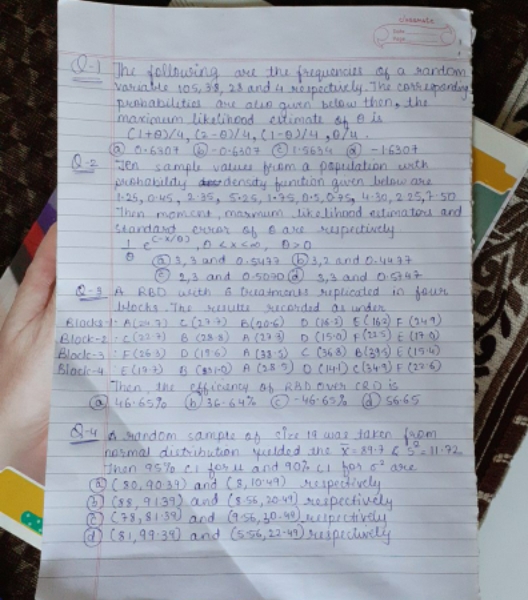 classmate
Date
Page
Q-1 The following are the frequencies of a random
variable 105, 38, 28 and 4 respectively. The corresponding
probabilities are also given below then, the
maximum likelihood estimate of θ is
(1+θ)/4, (2-θ)/4, (1-θ)/4, θ/4.
(a) 0.6307 (b) -0.6307 (c) 1.5634 (d) -1.6307
Q-2 Ten sample values from a population with
probability density function given below are
1.25, 0.45, 2.35, 5.25, 3.75, 0.5, 0.75, 4.30, 2.25, 7.50
Then moment, maximum likelihood estimators and
standard error of θ are respectively
1/θ e^(-x/θ), 0 < x < ∞, θ > 0
(a) 3,3 and 0.5477 (b) 3,2 and 0.4477
(c) 2,3 and 0.5070 (d) 3,3 and 0.5747
Q-3 A RBD with 6 treatments replicated in four
blocks. The results recorded as under
Blocks-1: A(24.7) C(27.7) B(20.6) D(16.2) E(16.2) F(24.9)
Block-2: C(22.7) B(28.8) A(27.3) D(15.0) F(22.5) E(17.0)
Block-3: F(26.3) D(19.6) A(38.5) C(36.8) B(39.5) E(15.4)
Block-4: E(17.7) B( A(28.5) D(14.1) C(34.9) F(22.6)
Then, the efficiency of RBD over CRD is
(a) 46.65% (b) 36.64% (c) -46.65% (d) 56.65
Q-4 A random sample of size 19 was taken from
normal distribution yielded the x̄ = 89.7 & s² = 11.72
Then 95% CI for μ and 90% CI for σ² are
(a) (80, 90.39) and (8, 10.49) respectively
(b) (88, 91.39) and (8.56, 20.49) respectively
(c) (78, 81.39) and (9.56, 30.49) respectively
(d) (81, 99.39) and (5.56, 22.49) respectively